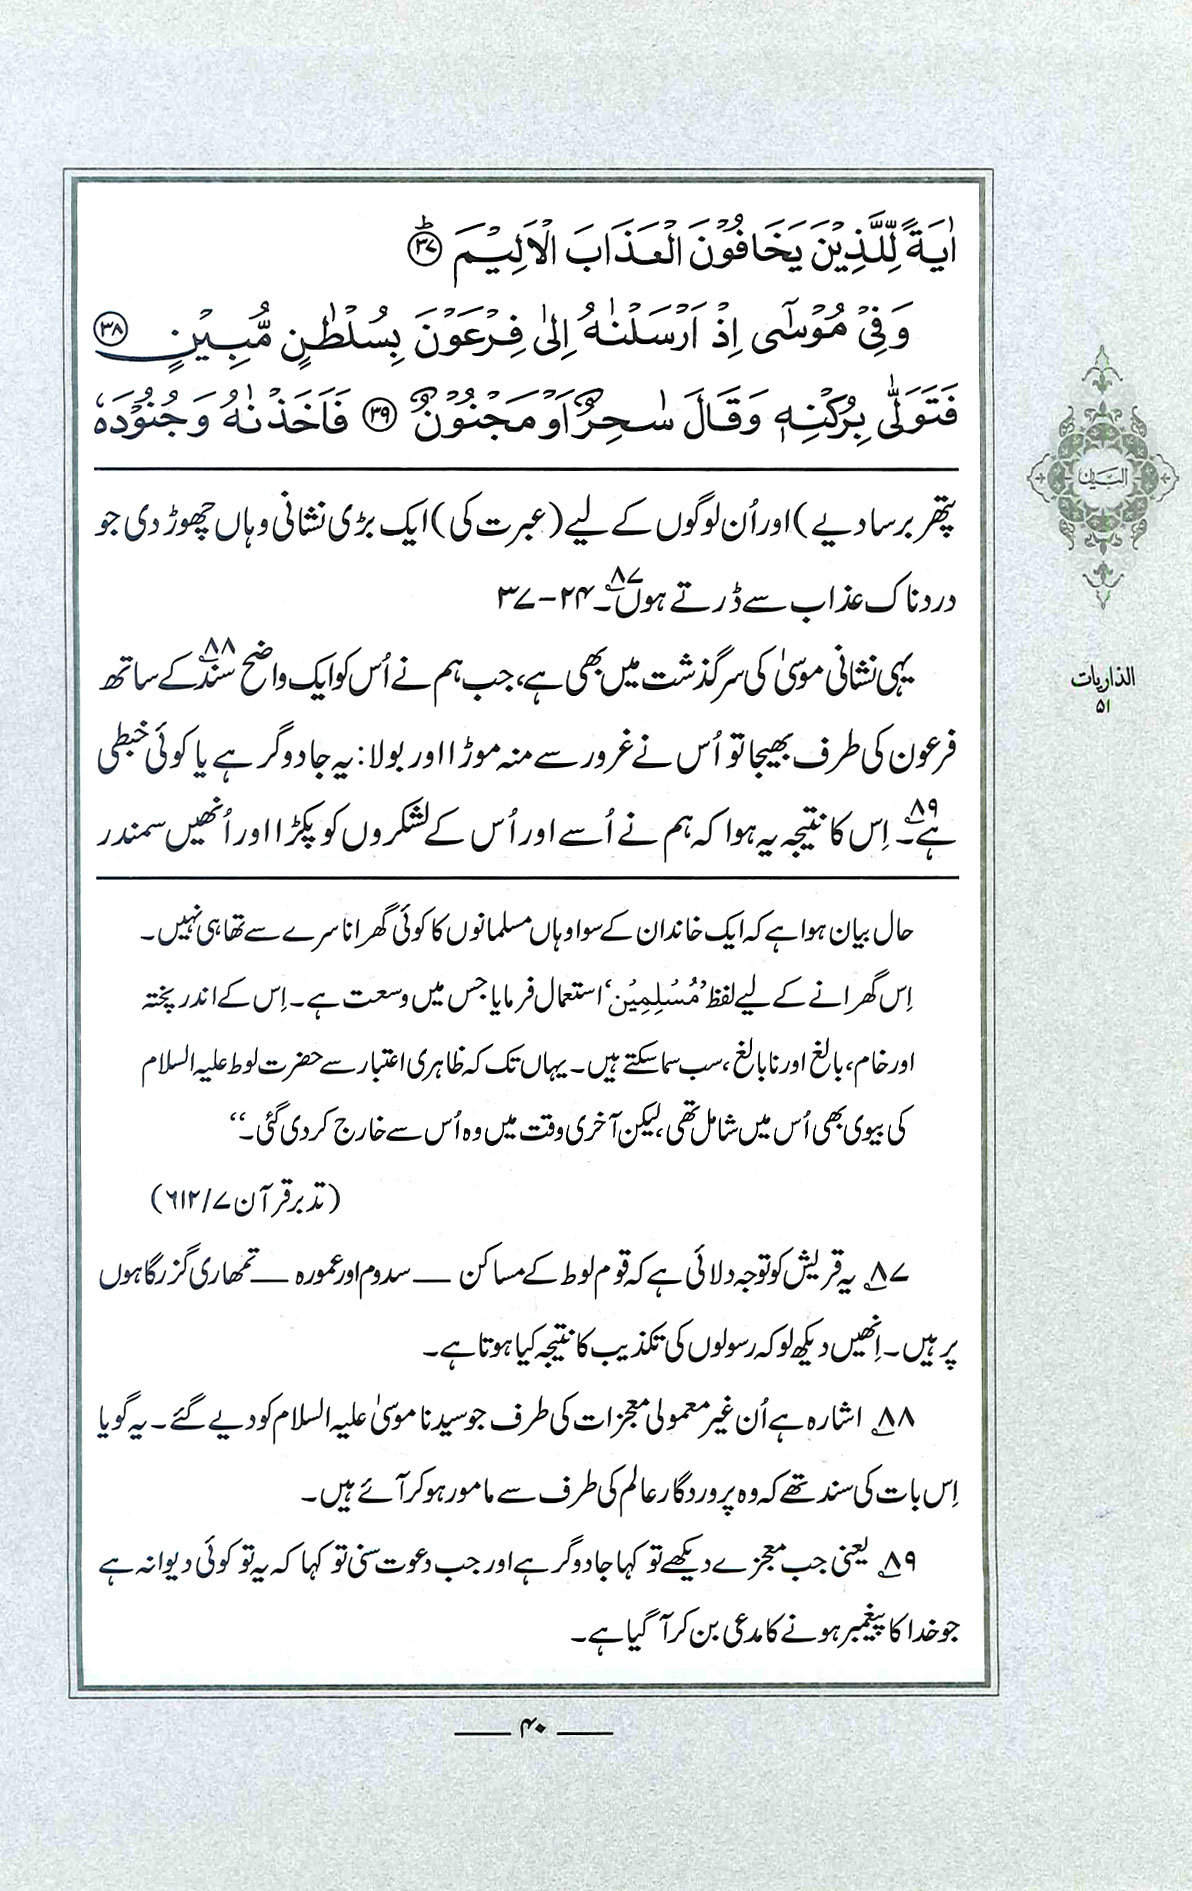 اٰيَةً لِّلَّذِيْنَ يَخَافُوْنَ الْعَذَابَ الْاَلِيْمَ ﴿۳۷﴾ؕ
وَفِيْ مُوْسٰٓى اِذْ اَرْسَلْنٰهُ اِلٰى فِرْعَوْنَ بِسُلْطٰنٍ مُّبِيْنٍ ﴿۳۸﴾
فَتَوَلّٰى بِرُكْنِهٖ وَقَالَ سٰحِرٌ اَوْ مَجْنُوْنٌ ﴿۳۹﴾ فَاَخَذْنٰهُ وَجُنُوْدَهٗ
پتھر برسا دیے) اور اُن لوگوں کے لیے (عبرت کی) ایک بڑی نشانی وہاں چھوڑ دی جو
دردناک عذاب سے ڈرتے ہوں۔۸۷ ۲۴-۳۷
یہی نشانی موسیٰ کی سرگذشت میں بھی ہے، جب ہم نے اُس کو ایک واضح سند۸۸ کے ساتھ
فرعون کی طرف بھیجا تو اُس نے غرور سے منہ موڑا اور بولا: یہ جادوگر ہے یا کوئی خبطی
ہے۔۸۹ اِس کا نتیجہ یہ ہوا کہ ہم نے اُسے اور اُس کے لشکروں کو پکڑا اور اُنھیں سمندر
حال بیان ہوا ہے کہ ایک خاندان کے سوا وہاں مسلمانوں کا کوئی گھرانا سرے سے تھا ہی نہیں۔
اِس گھرانے کے لیے لفظ ’مُسْلِمِيْن‘ استعمال فرمایا جس میں وسعت ہے۔ اِس کے اندر پختہ
اور خام، بالغ اور نابالغ، سب سما سکتے ہیں۔ یہاں تک کہ ظاہری اعتبار سے حضرت لوط علیہ السلام
کی بیوی بھی اُس میں شامل تھی، لیکن آخری وقت میں وہ اُس سے خارج کر دی گئی۔‘‘
(تدبر قرآن ۷/ ۶۱۲)
۸۷ یہ قریش کو توجہ دلائی ہے کہ قوم لوط کے مساکن — سدوم اور عمورہ — تمھاری گزرگاہوں
پر ہیں۔ اِنھیں دیکھ لو کہ رسولوں کی تکذیب کا نتیجہ کیا ہوتا ہے۔
۸۸ اشارہ ہے اُن غیر معمولی معجزات کی طرف جو سیدنا موسیٰ علیہ السلام کو دیے گئے۔ یہ گویا
اِس بات کی سند تھے کہ وہ پروردگار عالم کی طرف سے مامور ہو کر آئے ہیں۔
۸۹ یعنی جب معجزے دیکھے تو کہا جادوگر ہے اور جب دعوت سنی تو کہا کہ یہ تو کوئی دیوانہ ہے
جو خدا کا پیغمبر ہونے کا مدعی بن کر آ گیا ہے۔
البیان
الذاریات
۵۱
— ۴۰ —